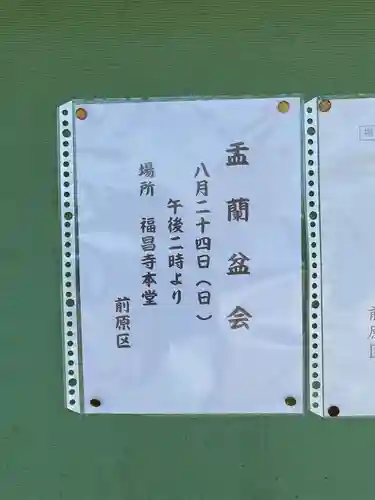 盂蘭盆会
八月二十四日(日)
午後二時より
場所 福昌寺本堂
前原区
前原区